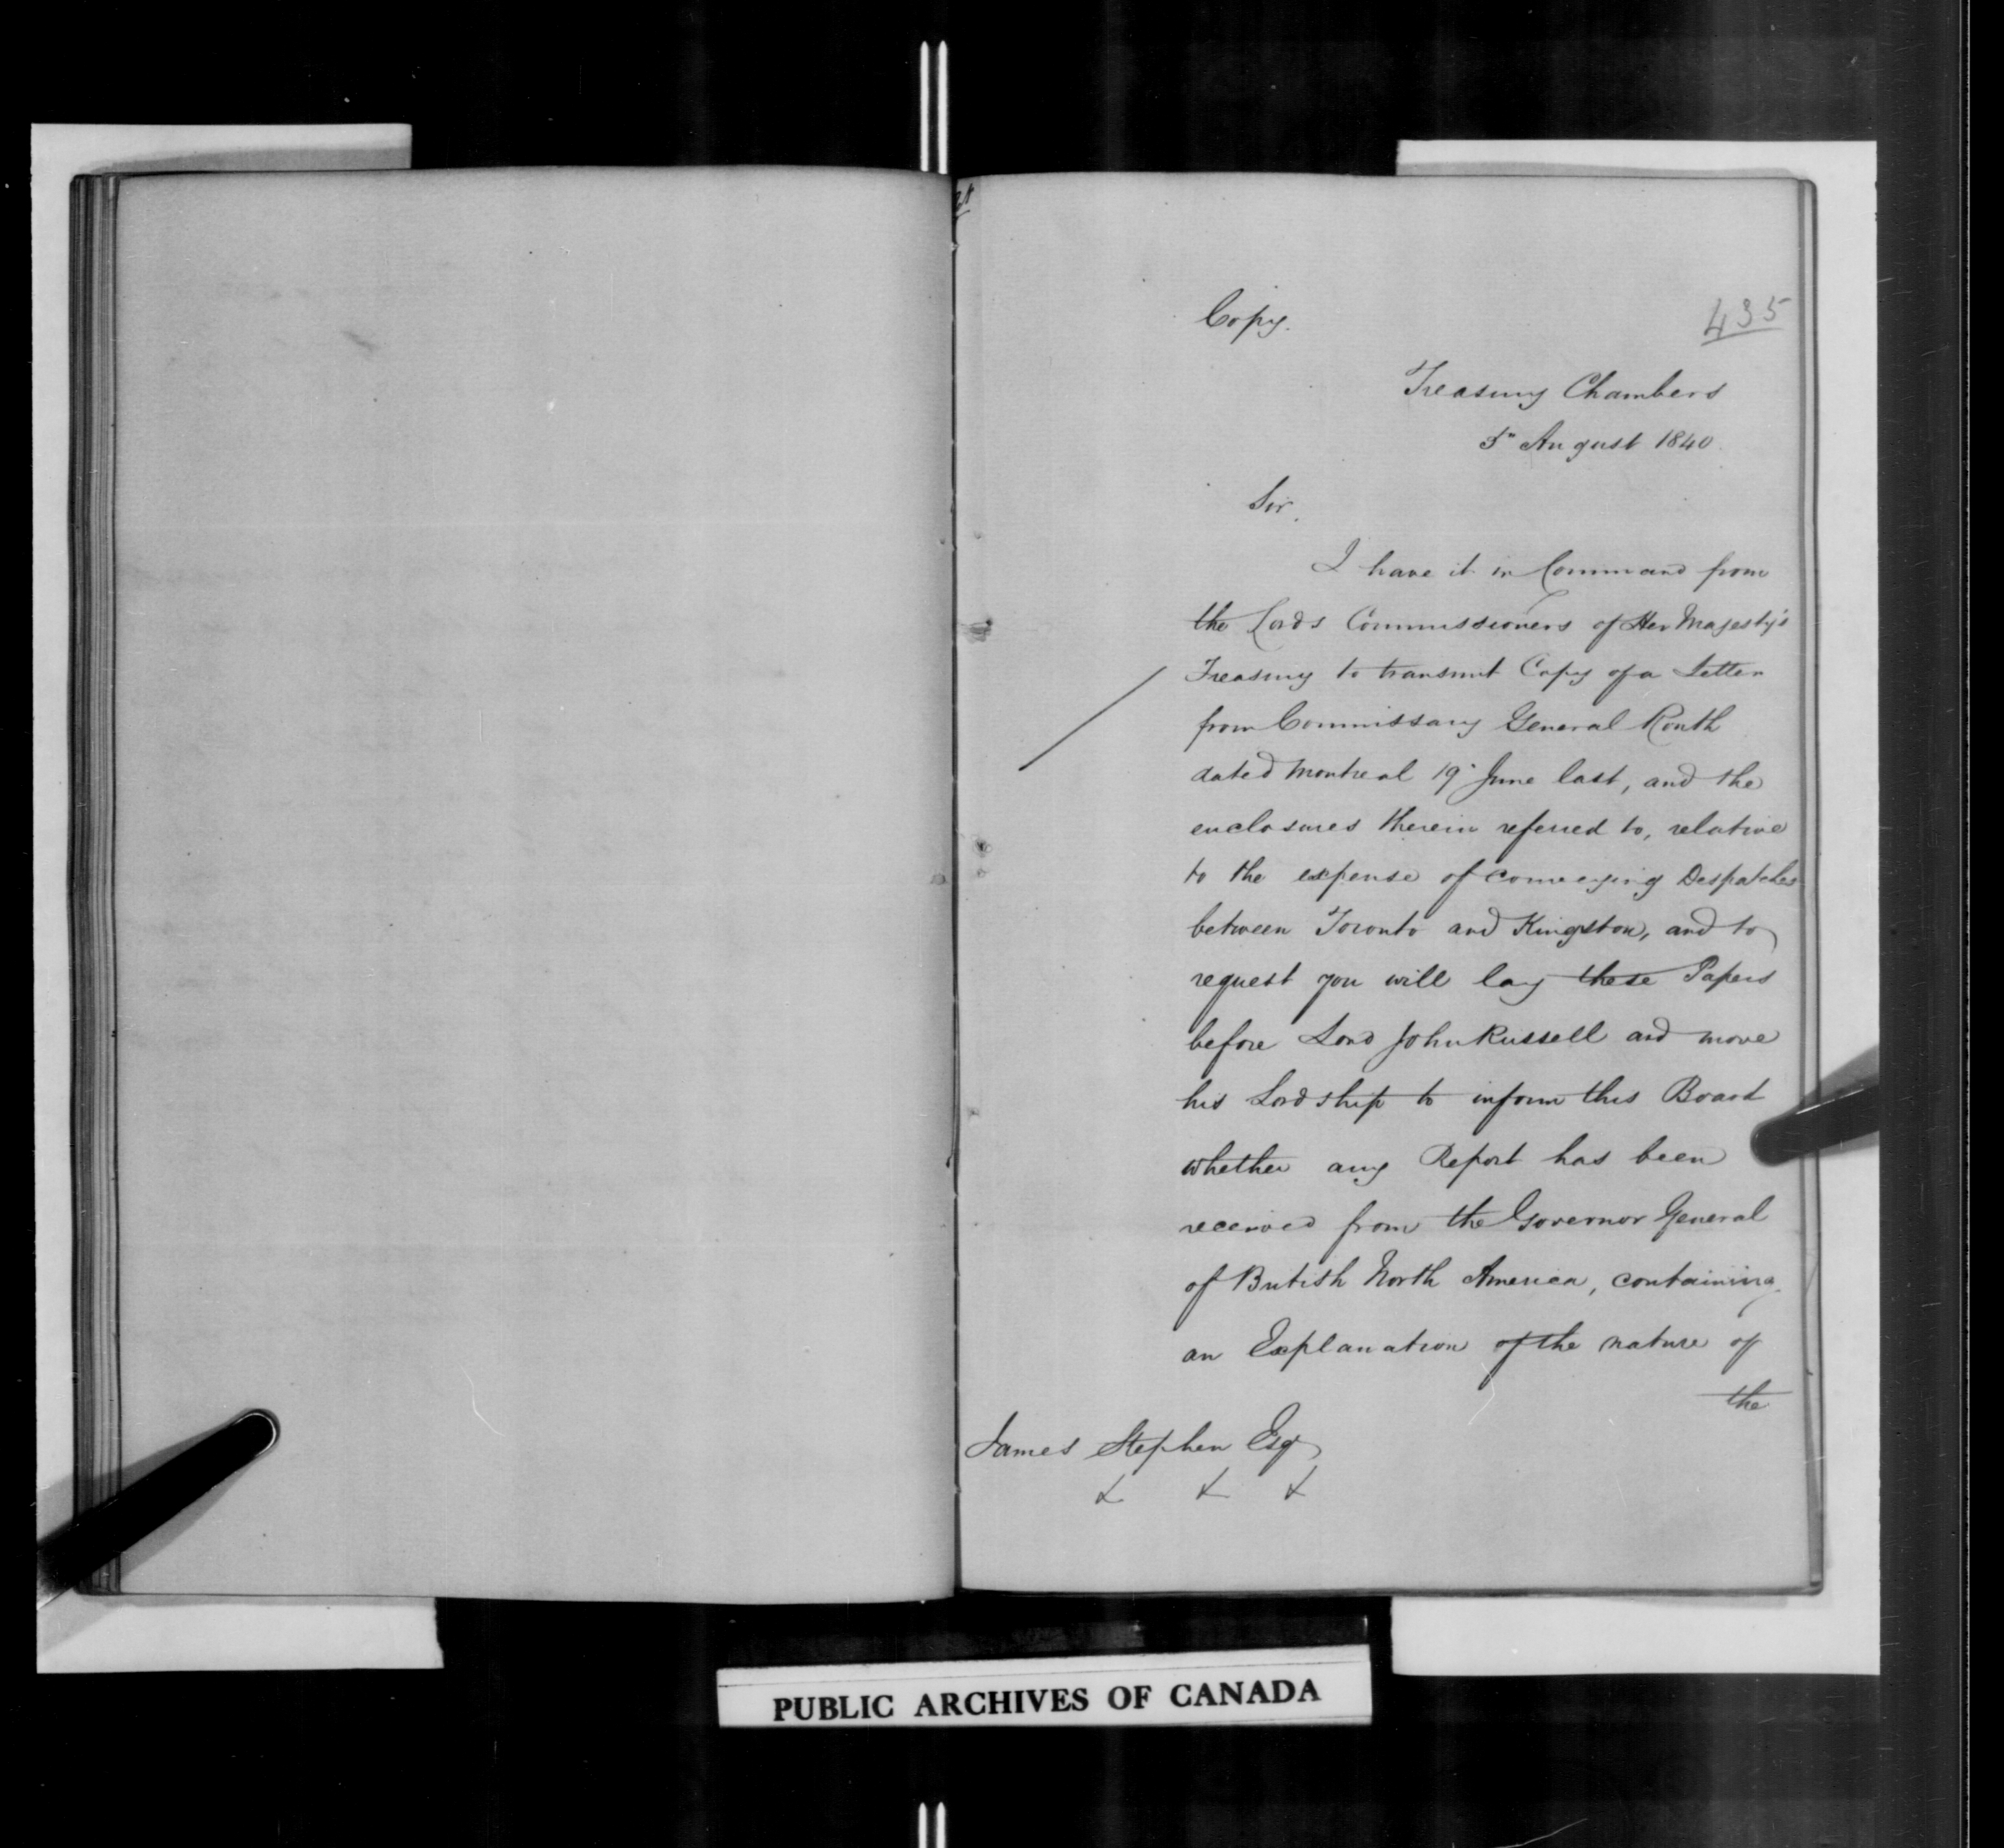 Copy.
435
Treasury Chambers
5th August 1840
Sir,
I have it in Command from
the Lords Commissioners of Her Majesty's
Treasury to transmit Copy of a Letter
from Commissary General Routh
dated Montreal 19 June last, and the
enclosures therein referred to, relative
to the expense of conveying Despatches
between Toronto and Kingston, and to
request you will lay these Papers
before Lord John Russell and move
his Lordship to inform this Board
whether any Report has been
received from the Governor General
of British North America, containing
an Explanation of the nature of
the
James Stephen Esq
PUBLIC ARCHIVES OF CANADA